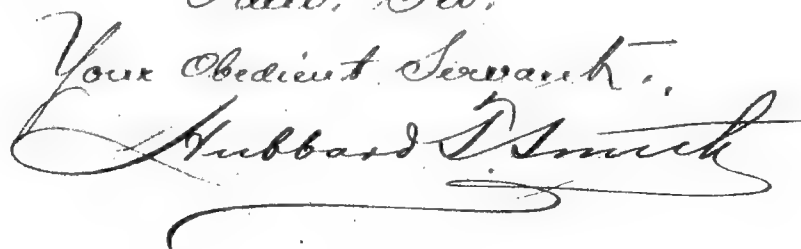 Your Obedient Servant.,
Hubbard T. Smith